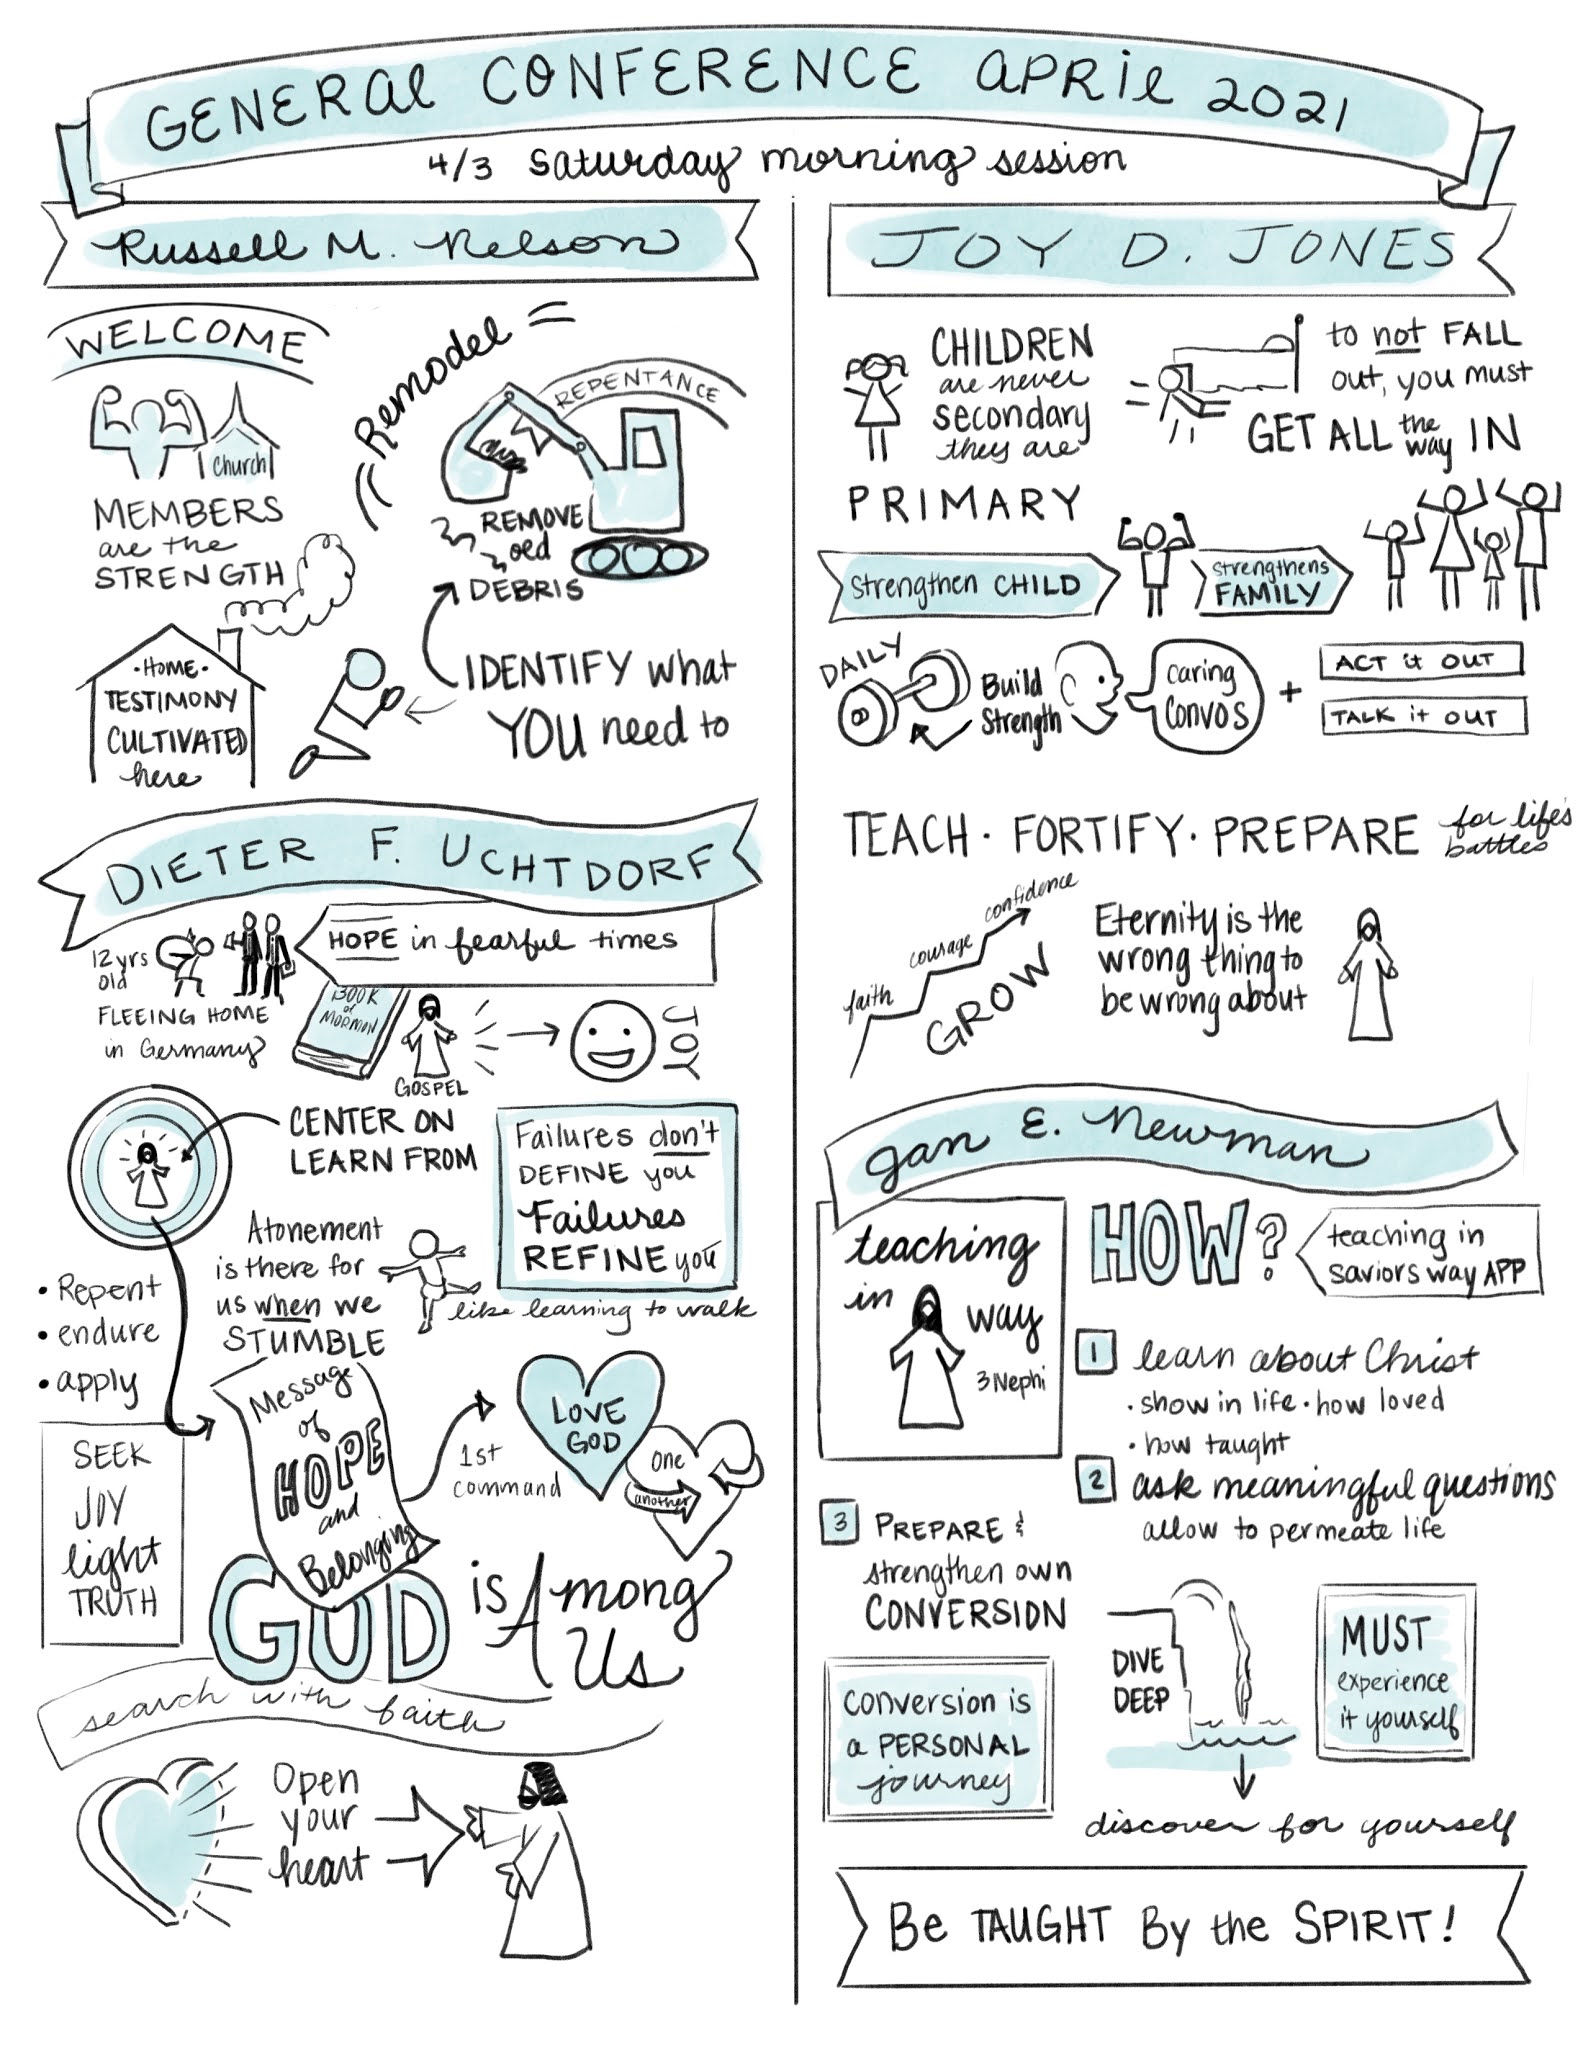 GENERAL CONFERENCE APRIL 2021
4/3 Saturday morning session
Russell M. Nelson
WELCOME
church
MEMBERS
are the
STRENGTH
Remodel
REPENTANCE
REMOVE
old
DEBRIS
• HOME •
TESTIMONY
CULTIVATED
here
IDENTIFY what
YOU need to
DIETER F. UCHTDORF
12 yrs
old
FLEEING HOME
in Germany
HOPE in fearful times
BOOK
of
MORMON
GOSPEL
JOY
CENTER ON
LEARN FROM
Failures don't
DEFINE you
Failures
REFINE you
like learning to walk
Atonement
is there for
us when we
STUMBLE
• Repent
• endure
• apply
SEEK
JOY
light
TRUTH
Message
of
HOPE
and
Belonging
1st
command
LOVE
GOD
one
another
GOD is Among
Us
search with faith
Open
your
heart
JOY D. JONES
CHILDREN
are never
secondary
they are
PRIMARY
to not FALL
out, you must
GET ALL the way IN
strengthen CHILD
strengthens
FAMILY
DAILY
Build
Strength
Caring
Convos
+
ACT it OUT
TALK it OUT
TEACH • FORTIFY • PREPARE for life's
battles
faith
courage
confidence
GROW
Eternity is the
wrong thing to
be wrong about
Jan E. Newman
teaching
in
way
3 Nephi
HOW?
teaching in
saviors way APP
1 learn about Christ
• show in life • how loved
• how taught
2 ask meaningful questions
allow to permeate life
3 PREPARE &
strengthen own
CONVERSION
conversion is
a PERSONAL
journey
DIVE
DEEP
MUST
experience
it yourself
discover for yourself
Be TAUGHT By the SPIRIT!